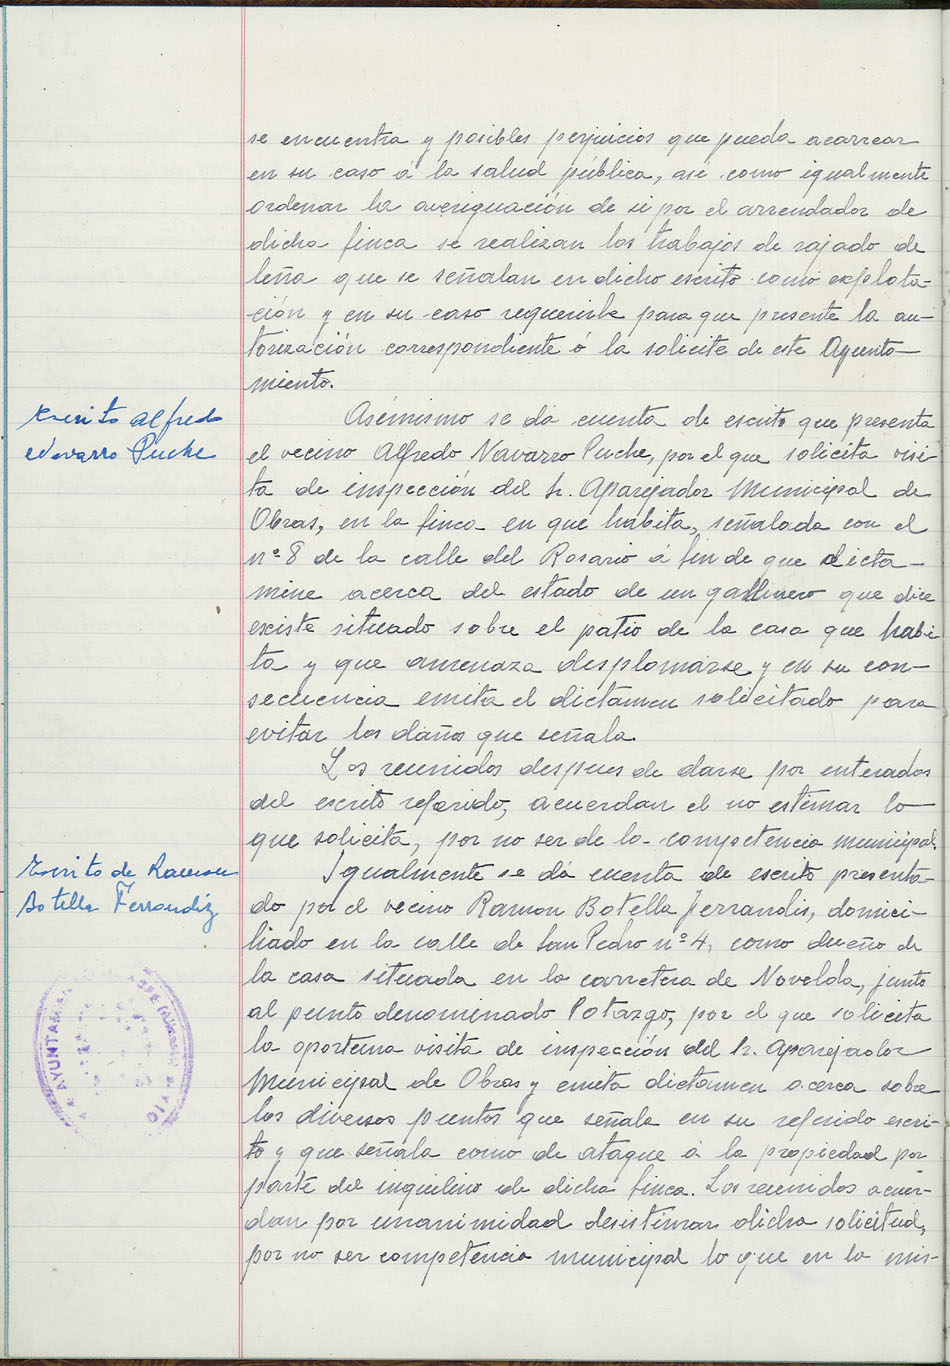 se encuentra y posibles perjuicios que pueda acarrear
en su caso á la salud pública, asi como igualmente
ordenar la averiguación de si por el arrendador de
dicha finca se realizan los trabajos de rajado de
leña que se señalan en dicho escrito como explota-
ción y en su caso requerirle para que presente la au-
torización correspondiente ó la solicite de este Ayunta-
miento.
Escrito Alfredo
Navarro Puche
Asimismo se dá cuenta de escrito que presenta
el vecino Alfredo Navarro Puche, por el que solicita visi-
ta de inspección del Sr. Aparejador Municipal de
Obras, en la finca en que habita, señalada con el
nº 8 de la calle del Rosario á fin de que dicta-
mine acerca del estado de un gallinero que dice
existe situado sobre el patio de la casa que habi-
ta y que amenaza desplomarse y en su con-
secuencia emita el dictamen solicitado para
evitar los daños que señala.
Los reunidos despues de darse por enterados
del escrito referido, acuerdan el no estimar lo
que solicita, por no ser de la competencia municipal.
Escrito de Ramon
Botella Ferrandiz
Igualmente se dá cuenta de escrito presenta-
do por el vecino Ramon Botella Ferrandis, domici-
liado en la calle de San Pedro nº 4, como dueño de
la casa situada en la carretera de Novelda, junto
al punto denominado Potazgo, por el que solicita
la oportuna visita de inspección del Sr. Aparejador
Municipal de Obras y emita dictamen acerca sobre
los diversos puntos que señala en su referido escri-
to y que señala como de ataque á la propiedad por
parte del inquilino de dicha finca. Los reunidos acuer-
dan por unanimidad desistimar dicha solicitud,
por no ser competencia municipal lo que en la mis-
AYUNTAMI